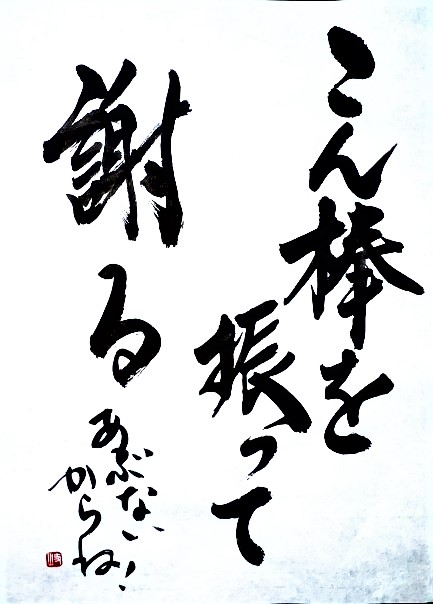 こん棒を
振って
謝る
あぶない!
からね